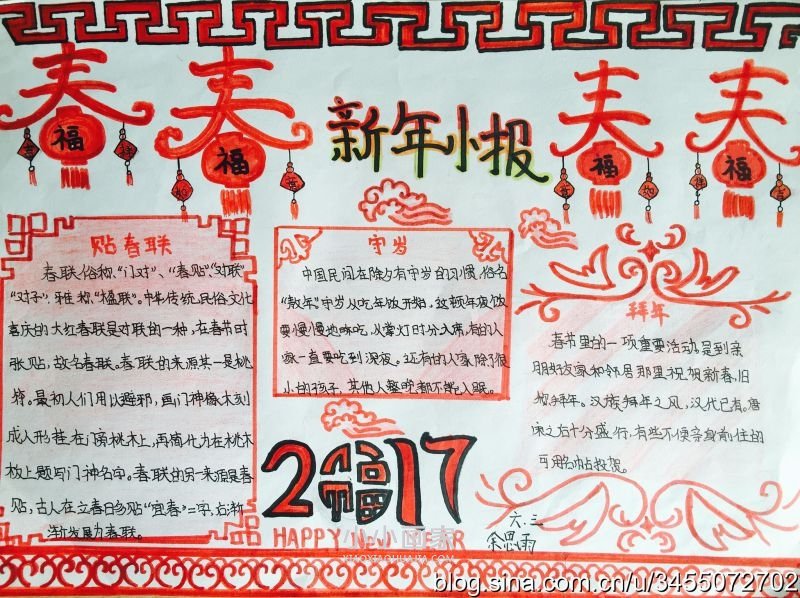 春 春 春 春
福 福 福 福
新年小报
贴春联
春联俗称"门对"、"春贴""对联"
"对子",雅称"楹联"。中华传统民俗文化
喜庆的大红春联是对联的一种,在春节时
张贴,故名春联。春联的来源其一是桃
符。最初人们用以避邪,画门神像木刻
成人形挂在门旁桃木上,再简化为在桃木
板上题写门神名字。春联的另一来源是春
贴,古人在立春日多贴"宜春"二字,后渐
渐发展为春联。
守岁
中国民间在除夕有守岁的习惯,俗名
"熬年"守岁从吃年饭开始,这顿年夜饭
要慢慢地吃,从掌灯时分入席,有的人
家一直要吃到深夜。还有的人家除了很
小的孩子,其他人整晚都不能入眠。
拜年
春节里的一项重要活动,是到亲
朋好友家和邻居那里祝贺新春,旧
称拜年。汉族拜年之风,汉代已有。唐
宋之后十分盛行,有些不便亲身前往的
可用名帖投贺。
2017
福
HAPPY NeW YEAR
小小画家
XIAOXIAOHUAJIA.COM
六.三
余思雨
blog.sina.com.cn/u/3455072702